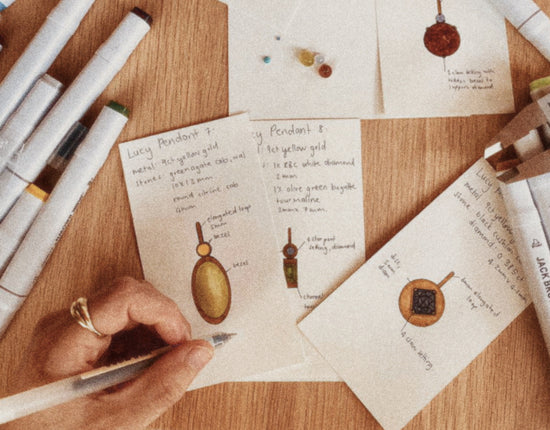 Lucy Pendant 7:
metal: 9ct yellow gold
stones: green agate cab, oval
10x13mm
round citrine cab
4mm
elongated loop
5mm
bezel
bezel
cy Pendant 8:
9ct yellow gold
1x RBC white diamond
2mm
1x olive green baguette
tourmaline
3mm x 7mm
4 claw
setting, diamond
channel
1 claw setting with
hidden bezel to
support diamond
Lucy
metal: 9ct yellow
stone: black
diamond 0.
4.2mm
5mm elongated
loop
4 claw setting
JACK